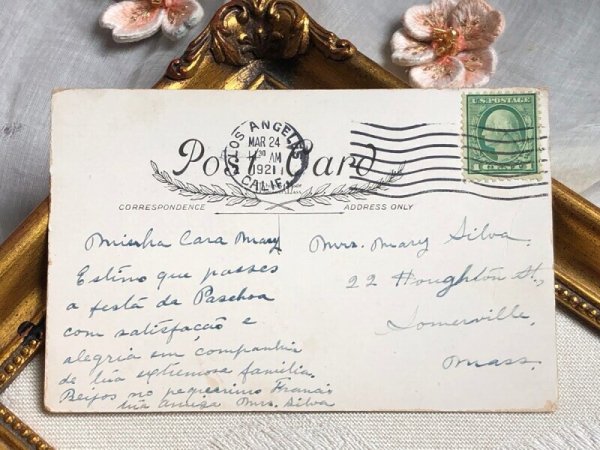 LOS ANGELES
MAR 24
30 AM
1921
CALIF.
U.S. POSTAGE
Post Card
CORRESPONDENCE
ADDRESS ONLY
Minha Cara Mary
Estimo que passes
a festa da Paschoa
com satisfacção e
alegria em companhia
de tua extremosa familia.
Beijos no pequenino Francis
tua amiga Mrs. Silva
Mrs. Mary Silva.
22 Houghton St.,
Somerville,
Mass.